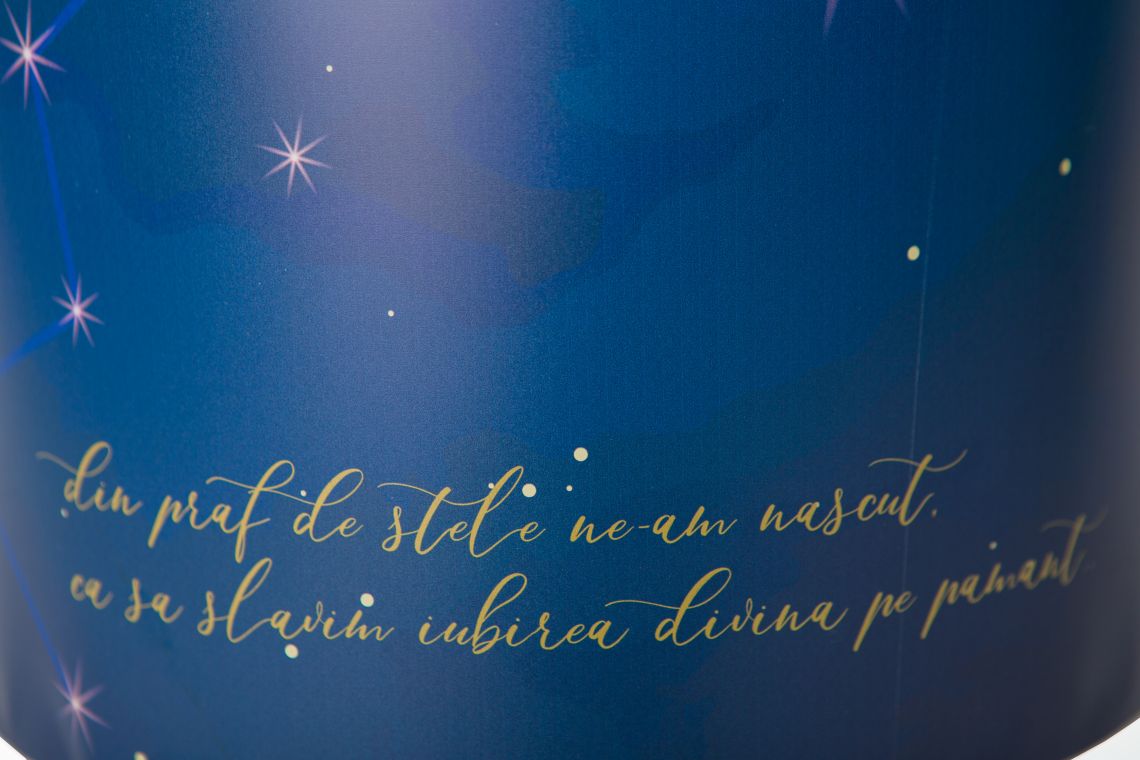 din praf de stele ne-am nascut,
ca sa slavim iubirea divina pe pamant..